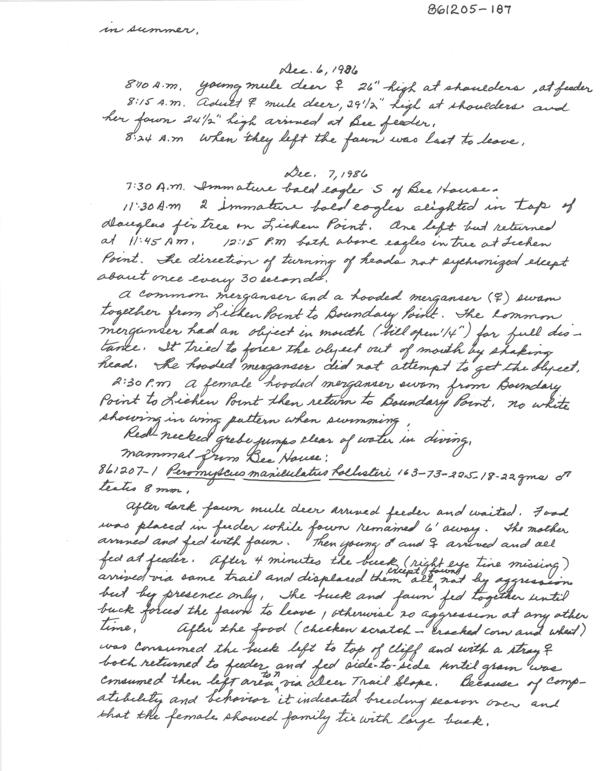 861205-187
in summer.
Dec. 6, 1986
8:10 A.M. young mule deer ♀ 26" high at shoulders, at feeder
8:15 A.M. Adult ♀ mule deer, 29 1/2" high at shoulders and
her fawn 24 1/2" high arrived at Bee feeder.
8:24 A.M when they left the fawn was last to leave.
Dec. 7, 1986
7:30 A.M. Immature bald eagle S of Bee House.
11:30 A.M 2 immature bald eagles alighted in top of
Douglas fir tree on Lichen Point. One left but returned
at 11:45 AM. 12:15 PM both above eagles in tree at Lichen
Point. The direction of turning of heads not sychronized except
about once every 30 seconds.
A common merganser and a hooded merganser (♀) swam
together from Lichen Point to Boundary Point. The common
merganser had an object in mouth (bill open 1/4") for full dis-
tance. It tried to force the object out of mouth by shaking
head. The hooded merganser did not attempt to get the object.
2:30 P.M A female hooded merganser swam from Boundary
Point to Lichen Point then return to Boundary Point. no white
showing in wing pattern when swimming.
Red-necked grebe jumps clear of water in diving.
Mammal from Bee House:
861207-1 Peromyscus maniculatus hollisteri 163-73-22.5-18-22gms ♂
testis 8 mm.
After dark fawn mule deer arrived feeder and waited. Food
was placed in feeder while fawn remained 6' away. The mother
arrived and fed with fawn. Then young ♂ and ♀ arrived and all
fed at feeder. After 4 minutes the buck (right eye tine missing)
arrived via same trail and displaced them all except fawn not by aggression
but by presence only. The buck and fawn fed together until
buck forced the fawn to leave, otherwise no aggression at any other
time. After the food (chicken scratch - cracked corn and wheat)
was consumed the buck left to top of cliff and with a stray ♀
both returned to feeder and fed side-to-side until grain was
consumed then left area via Deer Trail Slope. Because of comp-
atibility and behavior it indicated breeding season over and
that the female showed family tie with large buck.